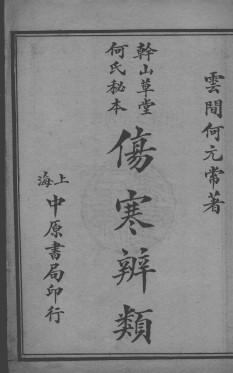 雲間何元常著
簳山草堂
何氏秘本
傷寒辨類
上海
中原書局印行